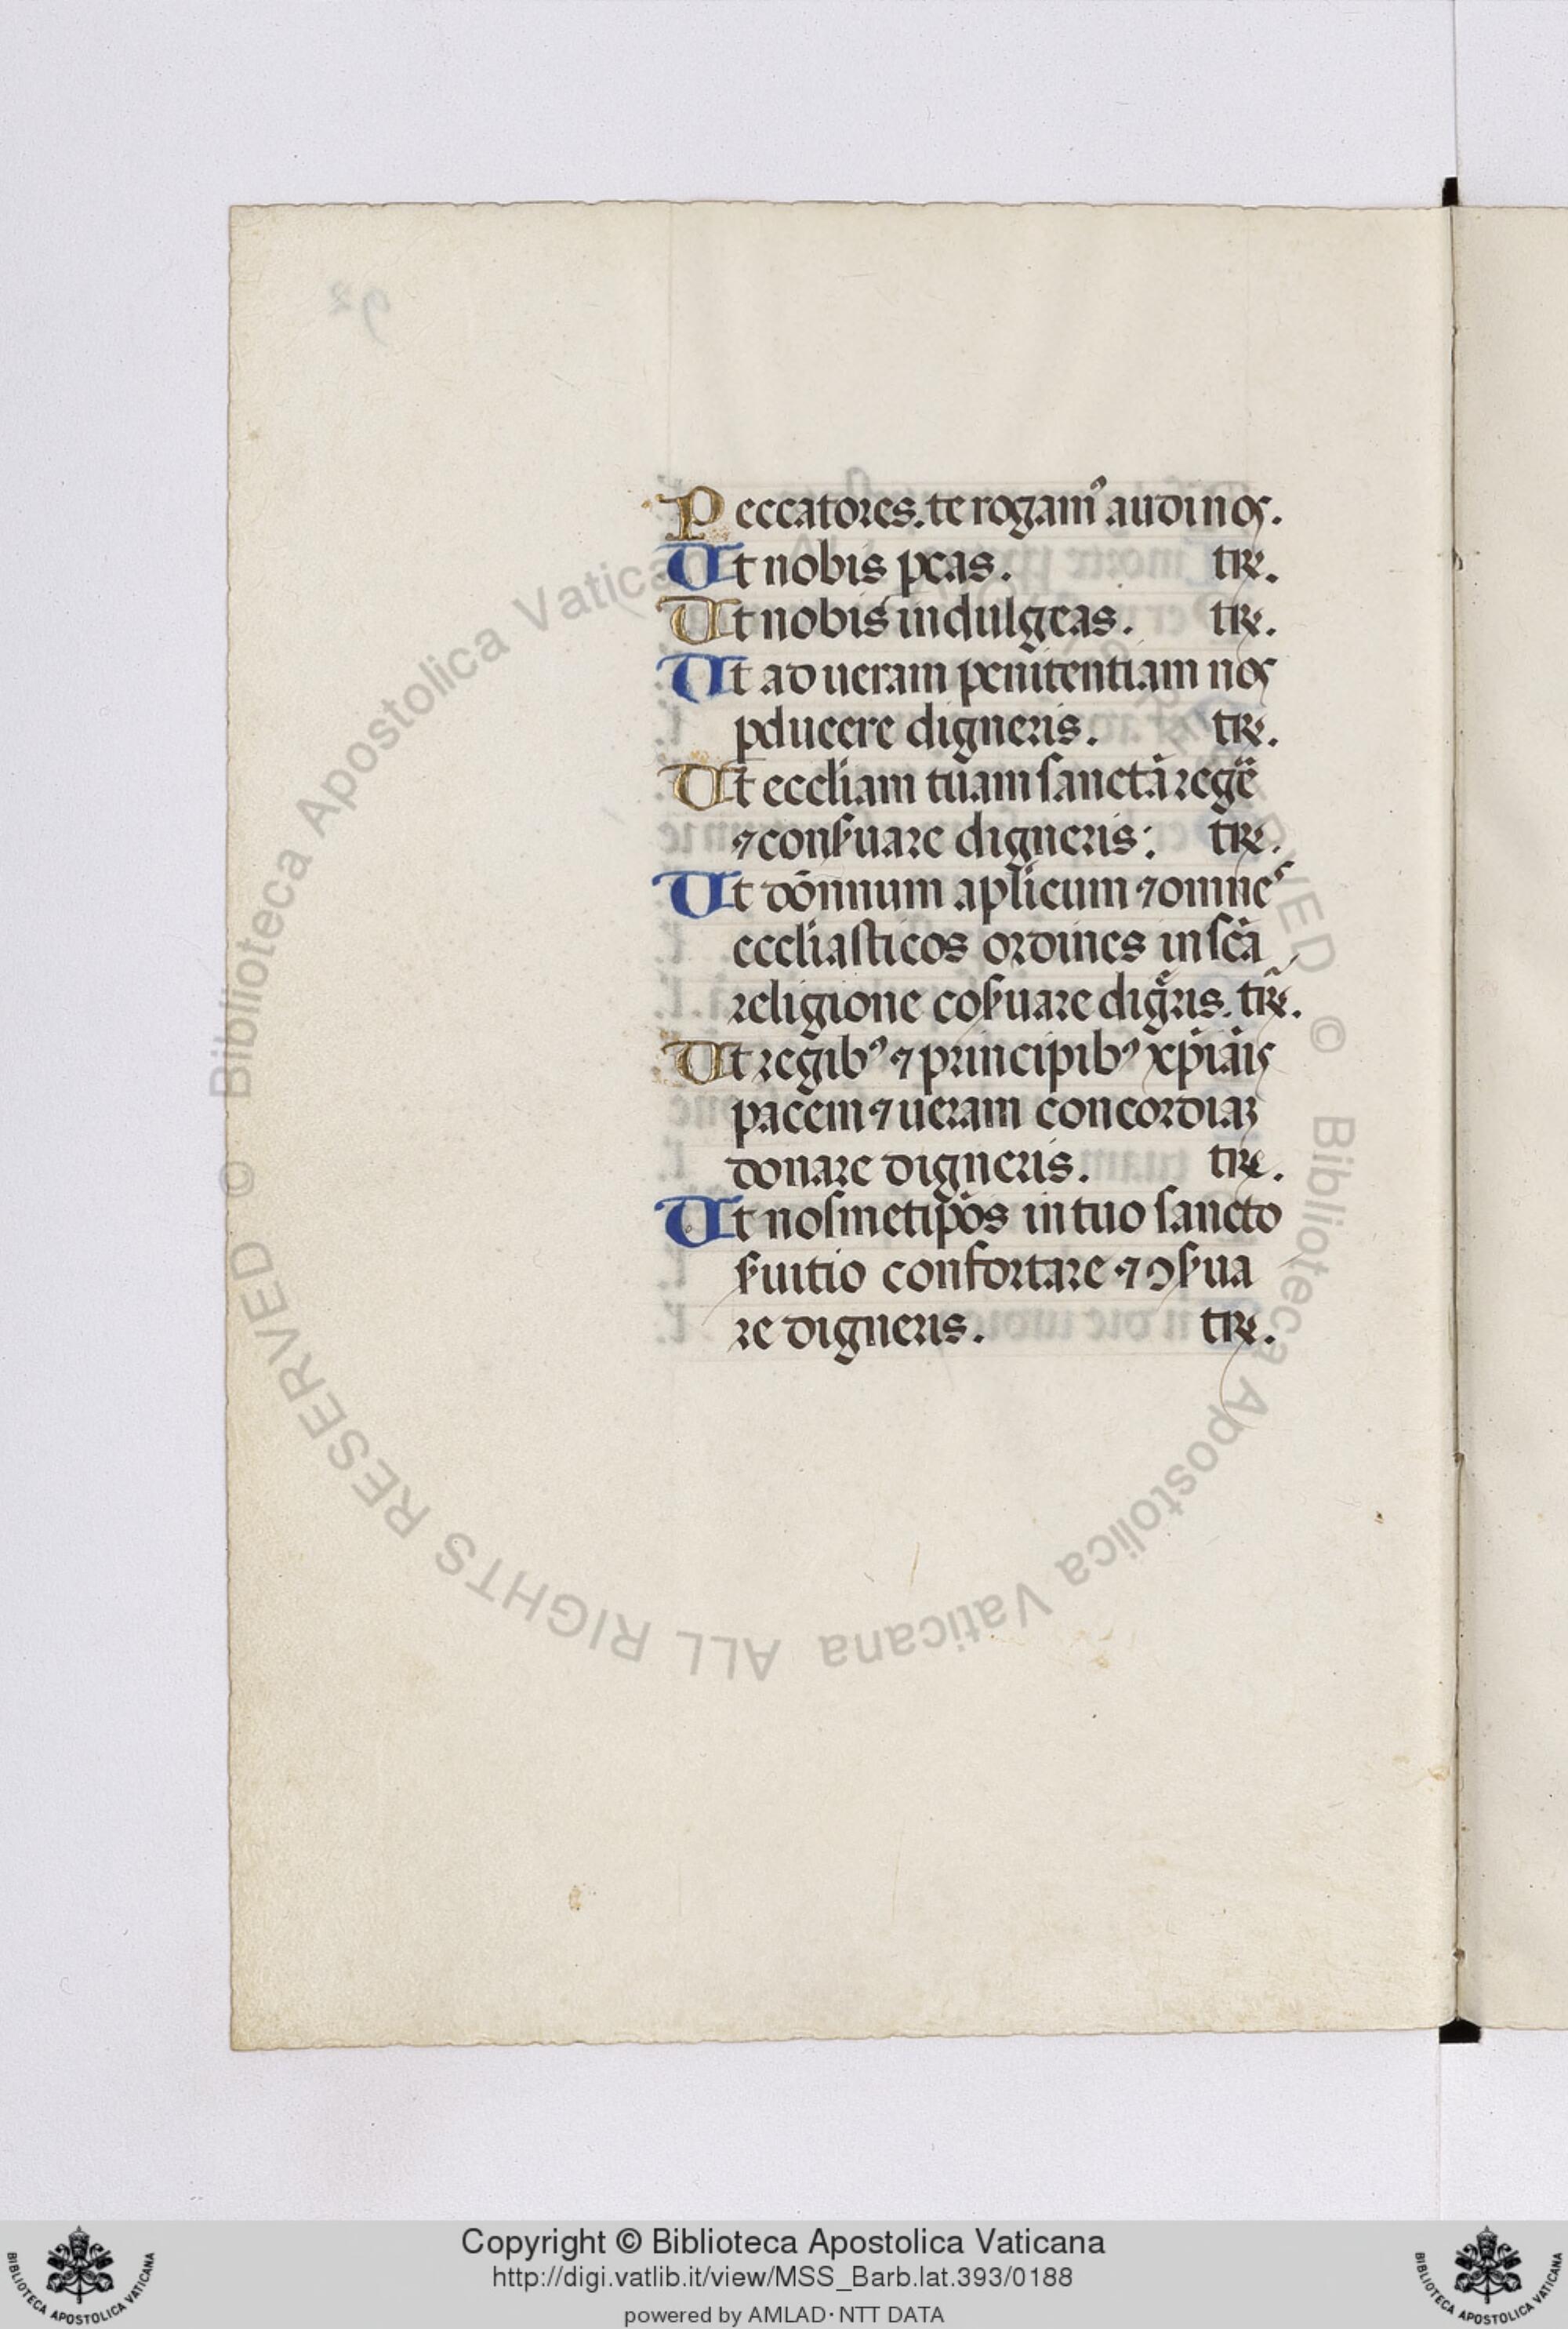 Peccatores. te rogamꝰ audi nos.
Ut nobis ꝑcas. tre.
Ut nobis indulgeas. tre.
Ut ad ueram penitentiam nos
ꝑducere digneris. tre.
Ut eccl̄iam tuam sanctā regē
⁊ conẜuare digneris: tre.
Ut dōnnum apl̄icum ⁊ omnes
eccl̄iasticos ordines in sc̄a
religione cōẜuare digris. tre.
Ut regibꝰ ⁊ principibꝰ xp̄iāis
pacem ⁊ ueram concordiaꝫ
donare digneris. tre.
Ut nosmetip̄os in tuo sancto
ẜuitio confortare ⁊ ↄẜua
re digneris. tre.
© Biblioteca Apostolica Vaticana ALL RIGHTS RESERVED © Biblioteca Apostolica Vatica
Copyright © Biblioteca Apostolica Vaticana
http://digi.vatlib.it/view/MSS_Barb.lat.393/0188
powered by AMLAD·NTT DATA
BIBLIOTECA APOSTOLICA VATICANA
BIBLIOTECA APOSTOLICA VATICANA